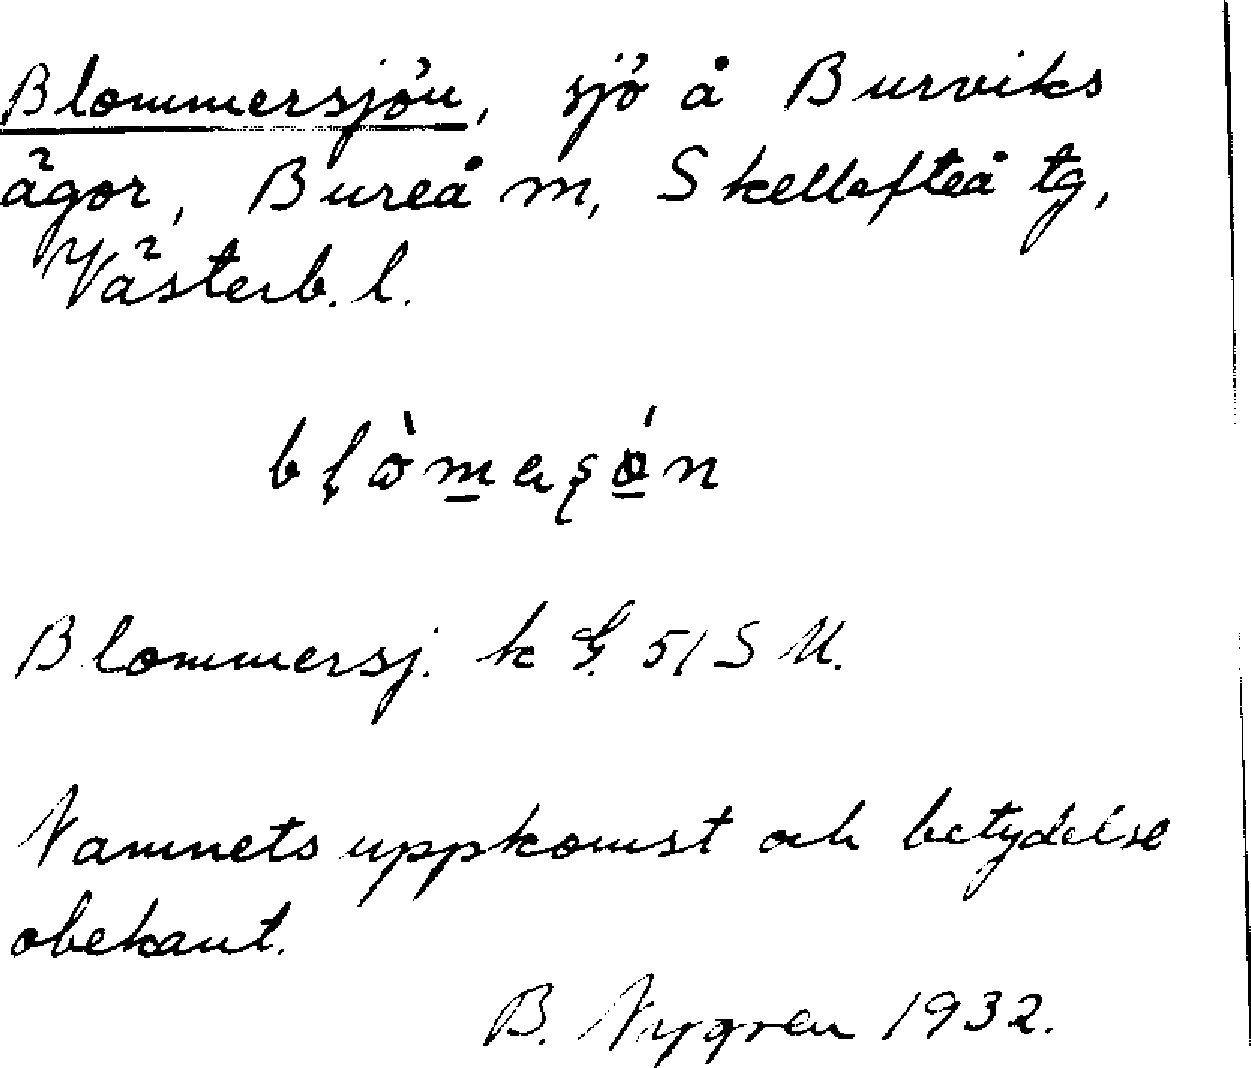 Blommersjön, sjö å Burviks
ägor, Bureå m, Skellefteå tg,
Västerb. l.
Blommersj. k G. 51 S U.
Namnets uppkomst och betydelse
obekant.
B. Nygren 1932.